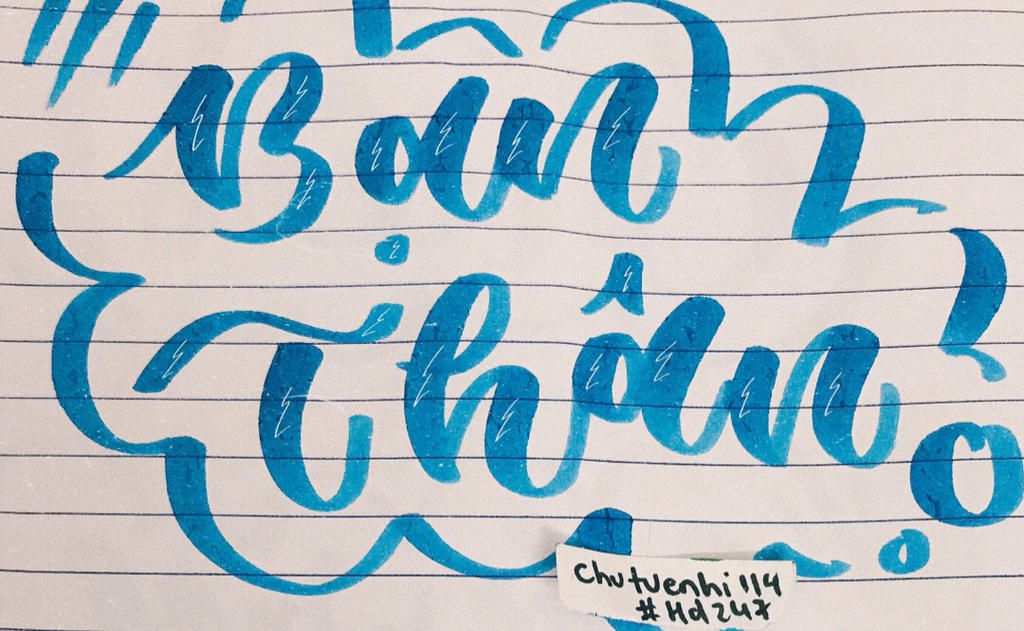 Bạn
Thân
chutuenhi 114
#Hd247